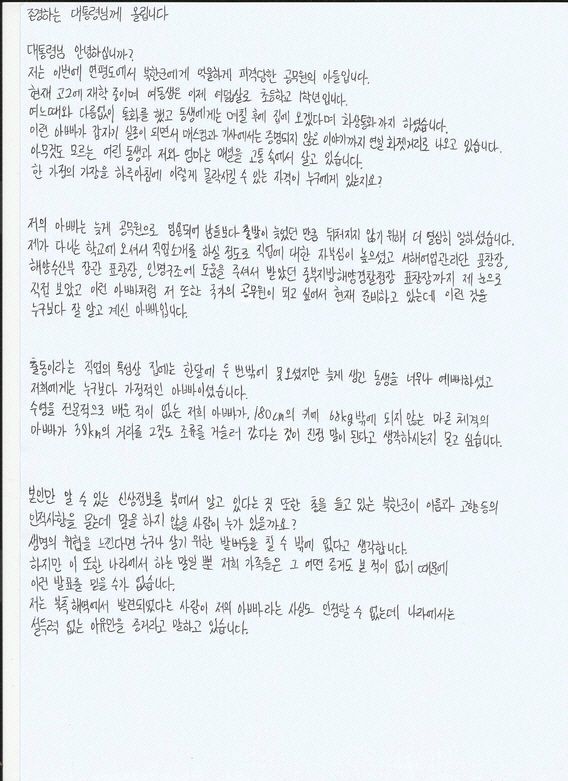 존경하는 대통령님께 올립니다
대통령님 안녕하십니까?
저는 이번에 연평도에서 북한군에게 억울하게 피격당한 공무원의 아들입니다.
현재 고2에 재학 중이며 여동생은 이제 여덟살로 초등학교 1학년입니다.
여느때와 다름없이 통화를 했고 동생에게는 며칠 후에 집에 오겠다며 화상통화까지 하였습니다.
이런 아빠가 갑자기 실종이 되면서 매스컴과 기사에서는 증명되지 않은 이야기까지 연일 화젯거리로 나오고 있습니다.
아무것도 모르는 어린 동생과 저와 엄마는 매일을 고통 속에서 살고 있습니다.
한 가정의 가장을 하루아침에 이렇게 몰락시킬 수 있는 자격이 누구에게 있는지요?
저의 아빠는 늦게 공무원으로 임용되어 남들보다 출발이 늦었던 만큼 뒤처지지 않기 위해 더 열심히 일하셨습니다.
제가 다니는 학교에 오셔서 직업소개를 하실 정도로 직업에 대한 자부심이 높으셨고 서해어업관리단 표창장,
해양수산부 장관 표창장, 인명구조에 도움을 주셔서 받았던 중부지방해양경찰청장 표창장까지 제 눈으로
직접 보았고 이런 아빠처럼 저 또한 국가의 공무원이 되고 싶어서 현재 준비하고 있는데 이런 것을
누구보다 잘 알고 계신 아빠입니다.
출동이라는 직업의 특성상 집에는 한달에 두 번밖에 못오셨지만 늦게 생긴 동생을 너무나 예뻐하셨고
저희에게는 누구보다 가정적인 아빠이셨습니다.
수영을 전문적으로 배운 적이 없는 저희 아빠가, 180cm의 키에 68kg밖에 되지 않는 마른 체격의
아빠가 38km의 거리를 그것도 조류를 거슬러 갔다는 것이 진정 말이 된다고 생각하시는지 묻고 싶습니다.
본인만 알 수 있는 신상정보를 북에서 알고 있다는 것 또한 총을 들고 있는 북한군이 이름과 고향 등의
인적사항을 묻는데 말을 하지 않을 사람이 누가 있을까요?
생명의 위협을 느낀다면 누구나 살기 위한 발버둥을 칠 수 밖에 없다고 생각합니다.
하지만 이 또한 나라에서 하는 말일 뿐 저희 가족들은 그 어떤 증거도 본 적이 없기 때문에
이런 발표를 믿을 수가 없습니다.
저는 북측 해역에서 발견되었다는 사람이 저의 아빠라는 사실도 인정할 수 없는데 나라에서는
설득력 없는 이유만을 증거라고 말하고 있습니다.